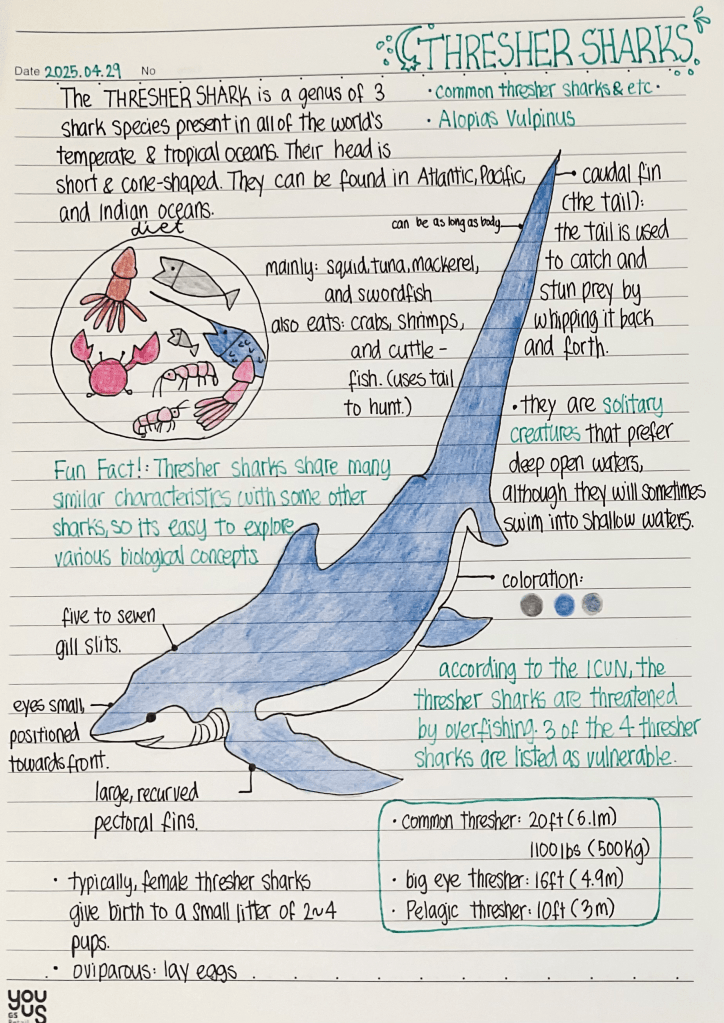 THRESHER SHARKS
Date 2025.04.29 No
The THRESHER SHARK is a genus of 3
shark species present in all of the world's
temperate & tropical oceans. Their head is
short & cone-shaped. They can be found in Atlantic, Pacific,
and Indian oceans.
• common thresher sharks & etc •
• Alopias Vulpinus
caudal fin
(the tail):
the tail is used
to catch and
stun prey by
whipping it back
and forth.
can be as long as body
diet
mainly: squid, tuna, mackerel,
and swordfish
also eats: crabs, shrimps,
and cuttle-
fish. (uses tail
to hunt.)
• they are solitary
creatures that prefer
deep open waters,
although they will sometimes
swim into shallow waters.
Fun Fact!: Thresher sharks share many
similar characteristics with some other
sharks, so its easy to explore
various biological concepts
coloration:
five to seven
gill slits.
eyes small,
positioned
towards front.
large, recurved
pectoral fins.
according to the ICUN, the
thresher sharks are threatened
by overfishing. 3 of the 4 thresher
sharks are listed as vulnerable.
• common thresher: 20ft (6.1m)
1100 lbs (500kg)
• big eye thresher: 16ft (4.9m)
• Pelagic thresher: 10ft (3m)
• typically, female thresher sharks
give birth to a small litter of 2~4
pups.
• oviparous: lay eggs
YOU
US
GS
Retail